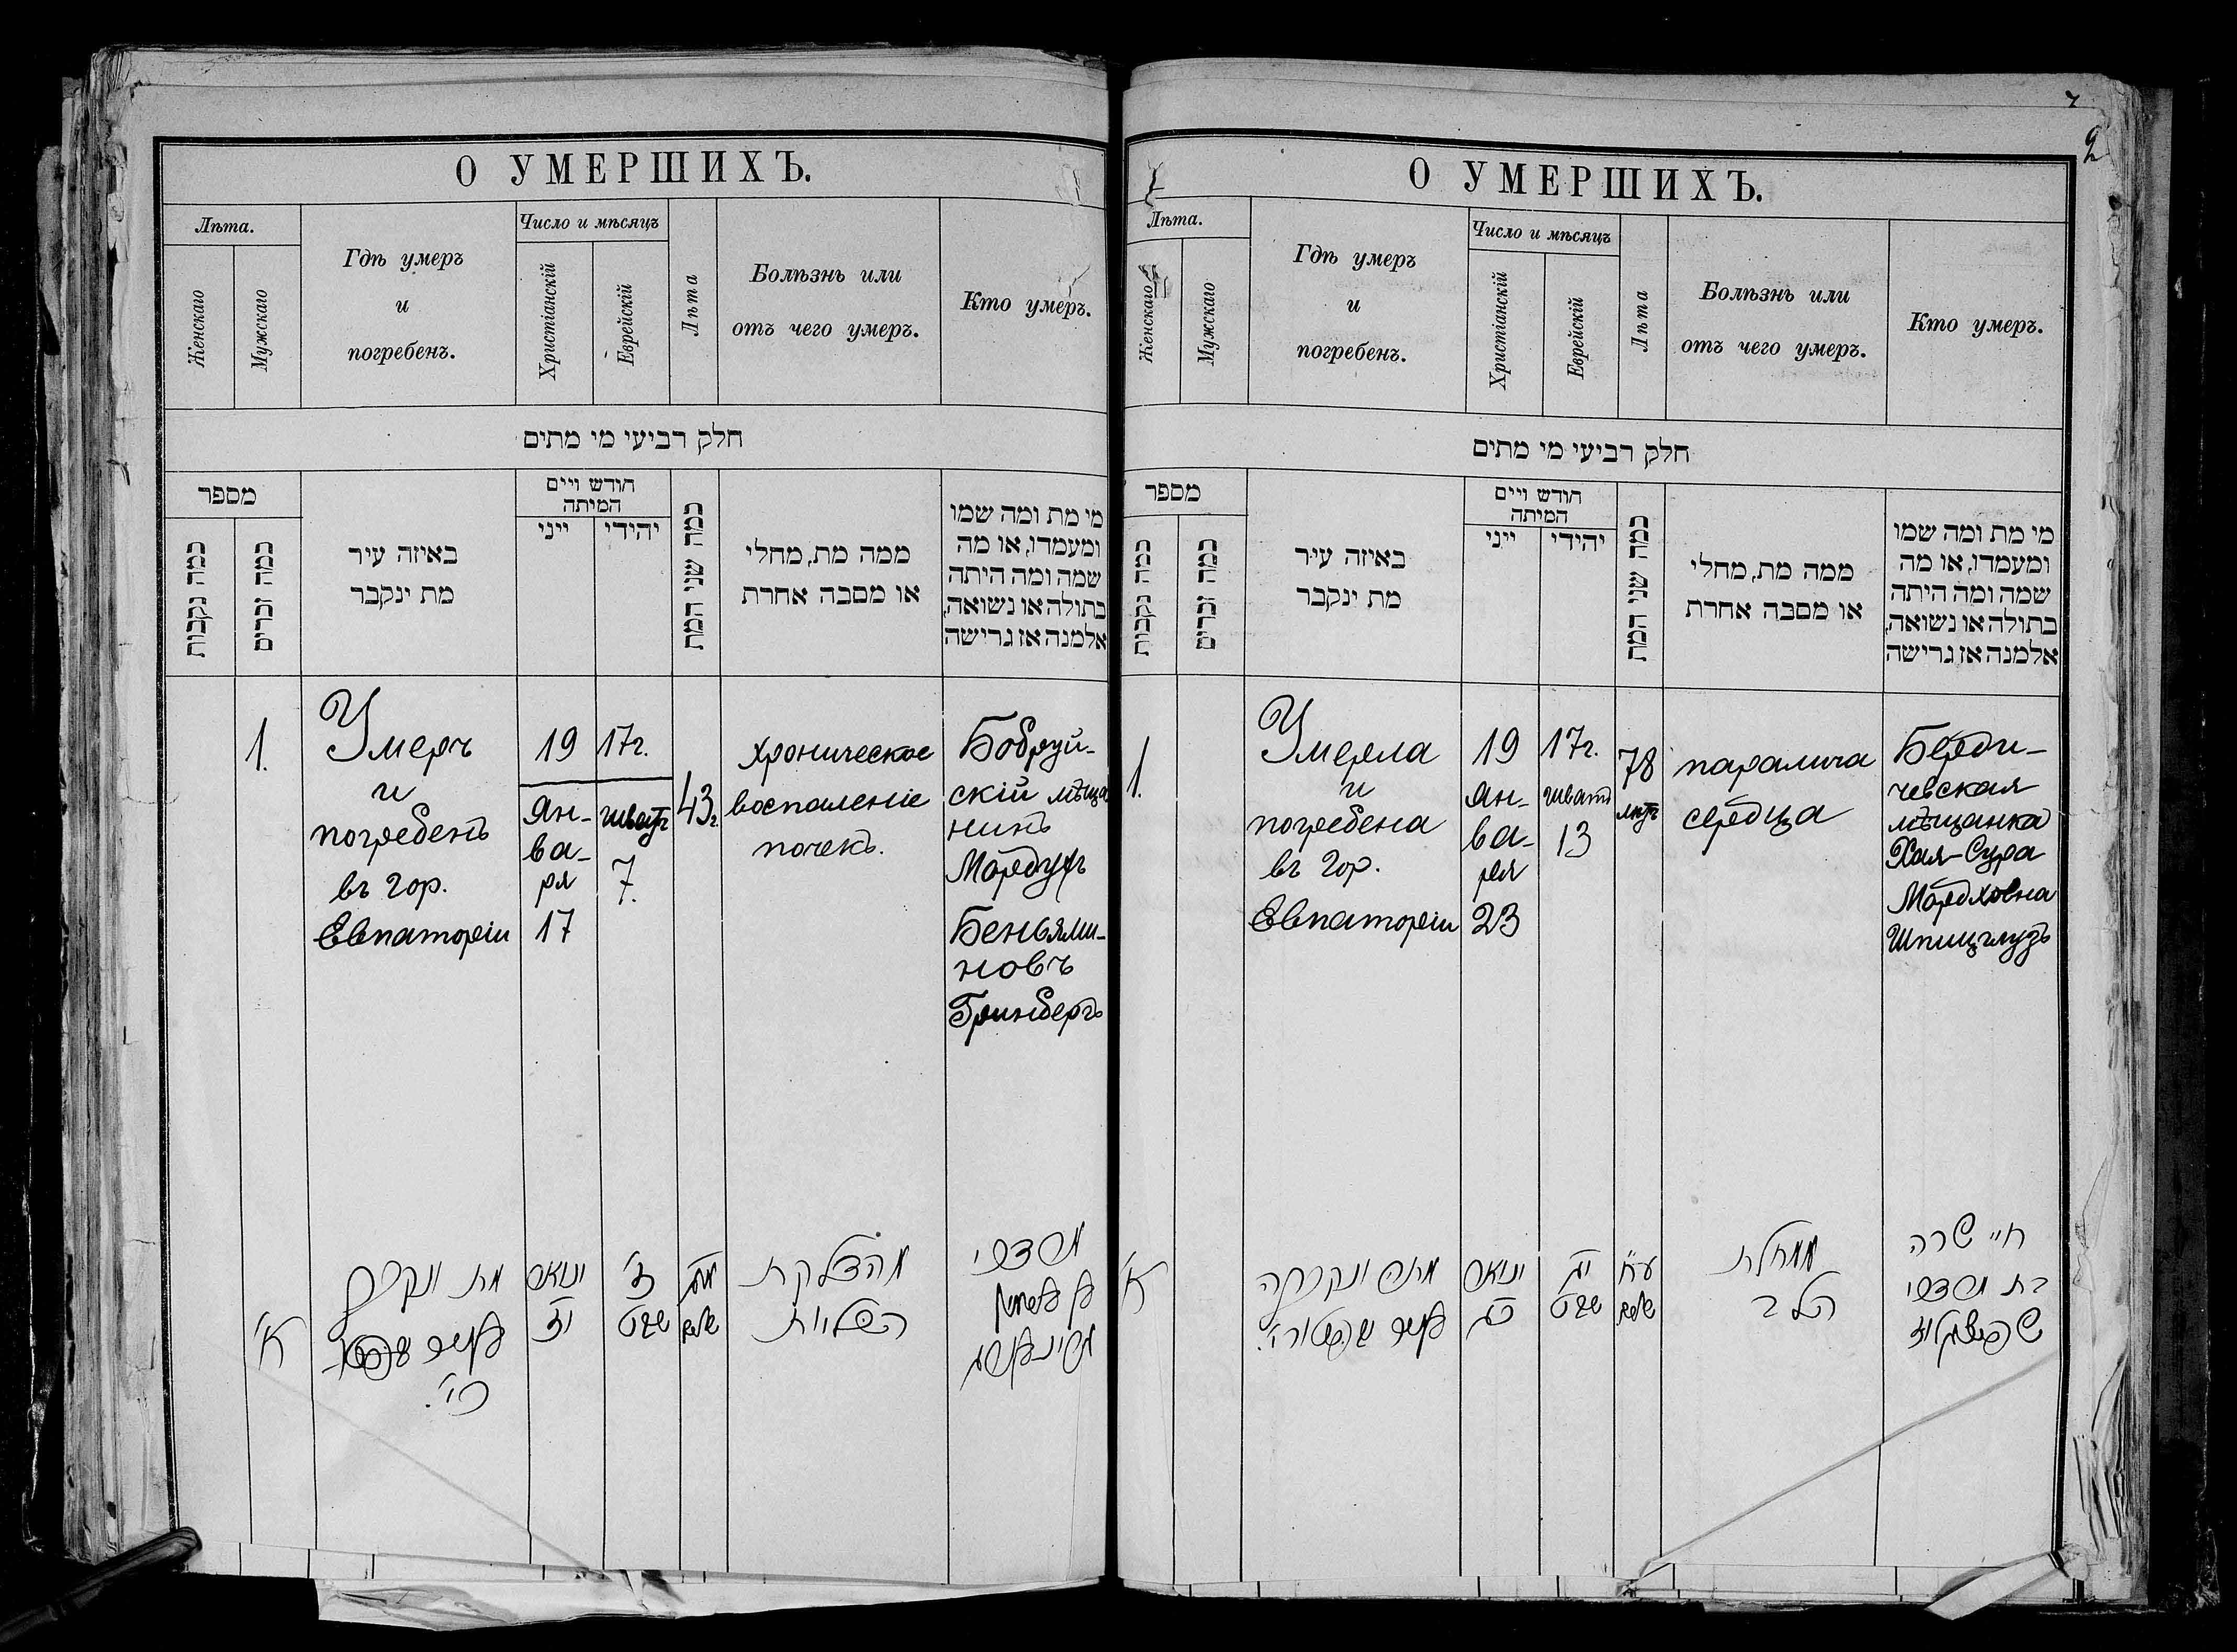 О УМЕРШИХЪ.
Лѣта.
Женскаго
Мужскаго
Гдѣ умеръ
и
погребенъ.
Число и мѣсяцъ
Христіанскій
Еврейскій
Лѣта
Болѣзнь или
отъ чего умеръ.
Кто умеръ.
חלק רביעי מי מתים
מספר
כמה נקבות
כמה זכרים
באיזה עיר
מת ינקבר
חודש ויים
המיתה
ייני
יהידי
כמה שני המת
ממה מת, מחלי
או מסבה אחרת
מי מת ומה שמו
ומעמדו, או מה
שמה ומה היתה
בתולה או נשואה,
אלמנה אז גרישה
1.
Умеръ
и
погребенъ
въ гор.
Евпаторіи
19 17г.
Ян-
ва-
ря
17
шватъ
7.
43г.
хроническое
воспаленіе
почекъ.
Бобруй-
скій мѣща
нинъ
Мордухъ
Беньями-
новъ
Гринбергъ
א'
מת ונקבר
בעיר
ינואר
יז
ז'
שבט
מג
שנים
מדלקת
הכליות
מרדכי
בן בנימין
גרינבערג
О УМЕРШИХЪ.
2
Лѣта.
Женскаго
Мужскаго
Гдѣ умеръ
и
погребенъ.
Число и мѣсяцъ
Христіанскій
Еврейскій
Лѣта
Болѣзнь или
отъ чего умеръ.
Кто умеръ.
חלק רביעי מי מתים
מספר
כמה נקבות
כמה זכרים
באיזה עיר
מת ינקבר
חודש ויים
המיתה
ייני
יהידי
כמה שני המת
ממה מת, מחלי
או מסבה אחרת
מי מת ומה שמו
ומעמדו, או מה
שמה ומה היתה
בתולה או נשואה,
אלמנה אז גרישה
1.
Умерла
и
погребена
въ гор.
Евпаторіи
19 17г.
Ян-
ва-
ря
23
шватъ
13
78
лѣтъ
паралича
сердца
Берди-
чевская
мѣщанка
Хая-Сура
Мордховна
Шпицглузъ
א'
מתה ונקברה
בעיר
ינואר
כג
יג
שבט
ע"ח
שנים
ממחלת
הלב
חי' שרה
בת מרדכי
שפיצגלוז